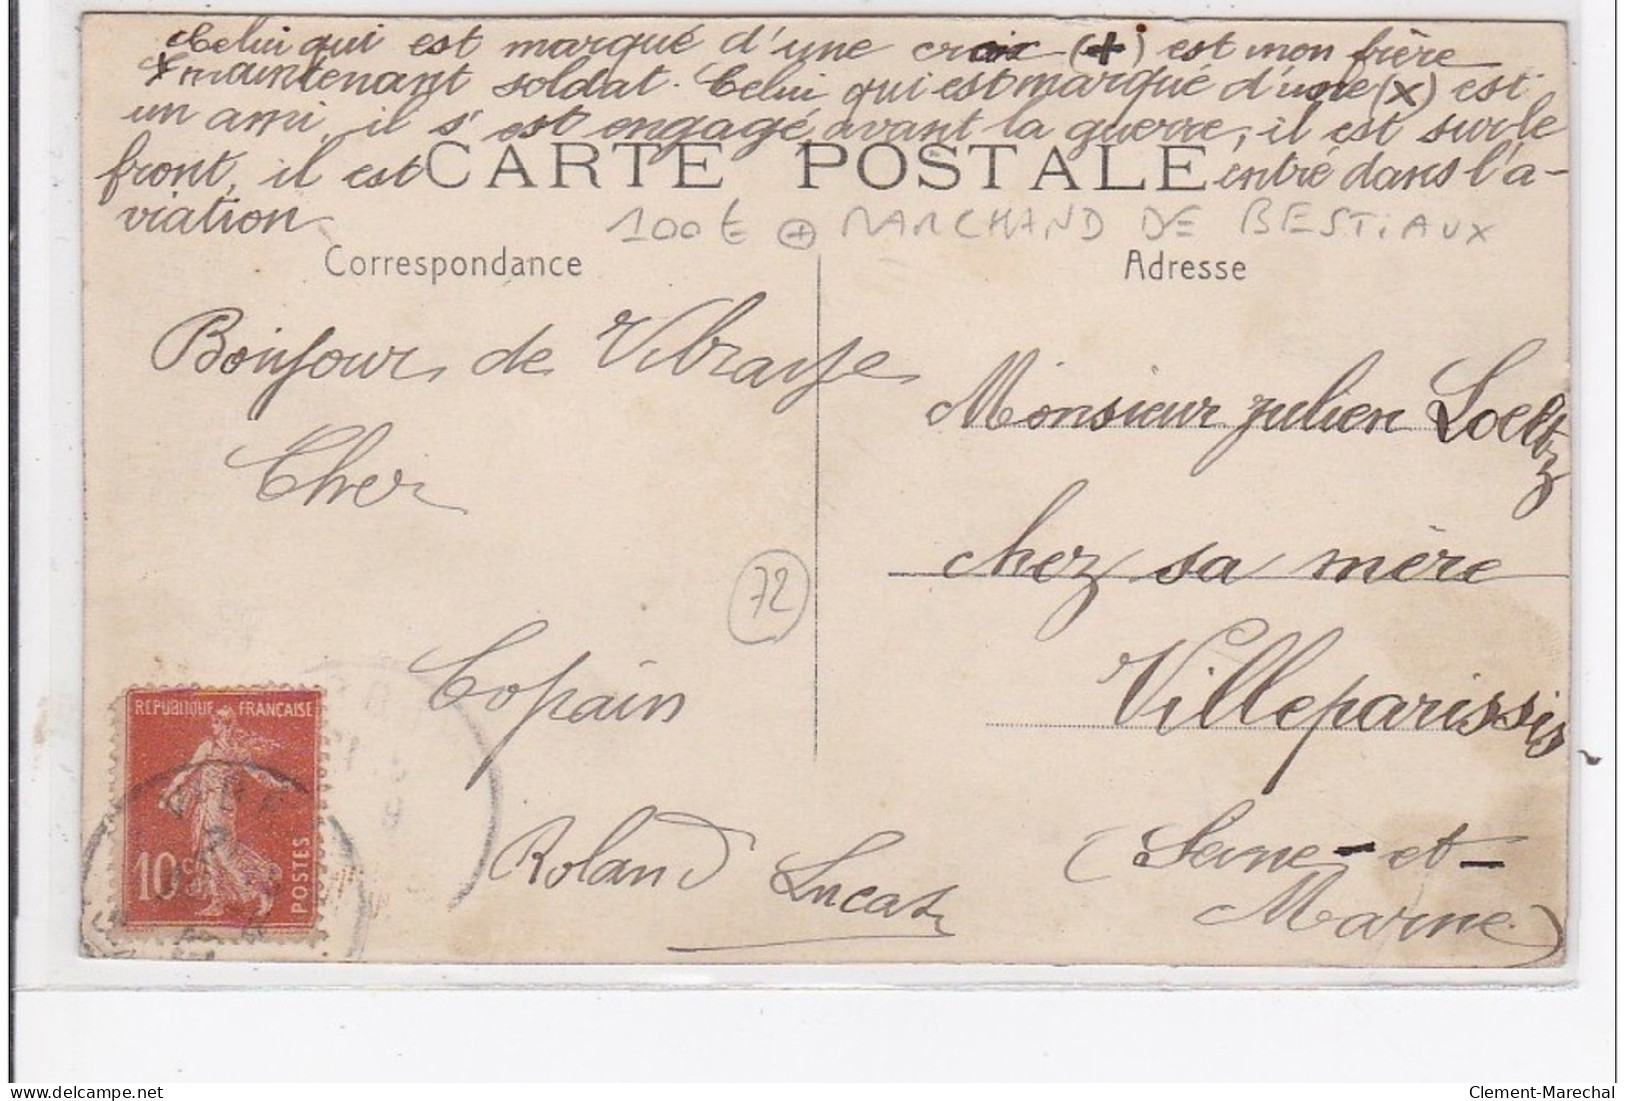 Celui qui est marqué d'une croix (+) est mon frère
maintenant soldat. Celui qui est marqué d'une (x) est
un ami, il s'est engagé avant la guerre, il est sur le
front, il est entré dans l'a-
viation
CARTE POSTALE
100€ + MARCHAND DE BESTIAUX
Correspondance
Adresse
Bonjour de Vibraye
Cher
Copain
Roland Lucas
72
Monsieur Julien Loeltz
chez sa mère
Villeparissis
(Seine-et-
Marne)
REPUBLIQUE FRANÇAISE
10c
POSTES
Clement-Marechal